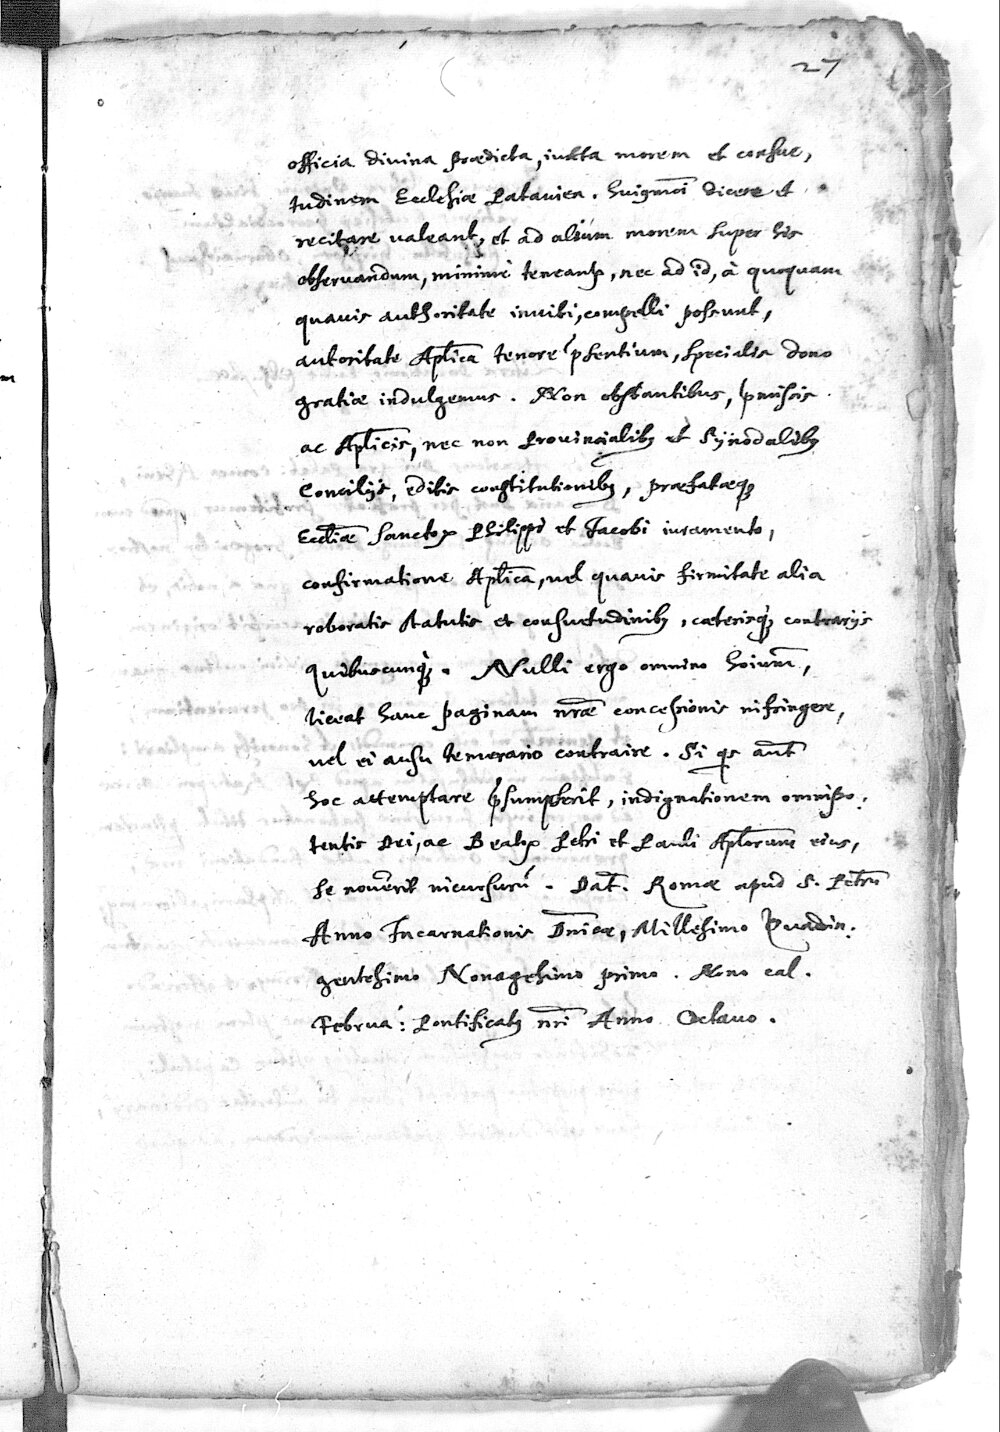 27
officia divina prædicta, iuxta morem et consue,
tudinem Ecclesiæ Patavien. huiusmōi dicere et
recitare valeant, et ad alium morem super his
observandum, minimè teneantʳ, nec ad id, à quoquam
quavis authoritate inviti, compelli possunt,
autoritate Aplīca tenore p̄sentium, specialis dono
gratiæ indulgemus. Non obstantibus, p̄missis
ac Aplīcis, nec non Provincialibꝫ et Synodalibꝫ
Concilijs, editis constitutionibꝫ, præfatæqꝫ
Eccliǣ Sanctoꝝ Philippi et Jacobi iuramento,
confirmatione Aplīca, vel quavis firmitate alia
roboratis statutis et consuetudinibꝫ, cæterisqꝫ contrarijs
quibuscunqꝫ. Nulli ergo omnino hoium̄,
liceat hanc paginam nr̄æ concessionis infringere,
vel ei ausu temerario contraire. Si qs aut̄
hoc attemptare p̄sumpserit, indignationem omnipo:
tentis Dei, ac Beatoꝝ Petri et Pauli Aplōrum eius,
se noverit incursurū. Dat̄. Romæ apud S. Petrū
Anno Incarnationis Dn̄icæ, Millesimo Quadin:
gentesimo Nonagesimo primo. Nono cal.
Februa: Pontificatꝫ nr̄i Anno Octavo.